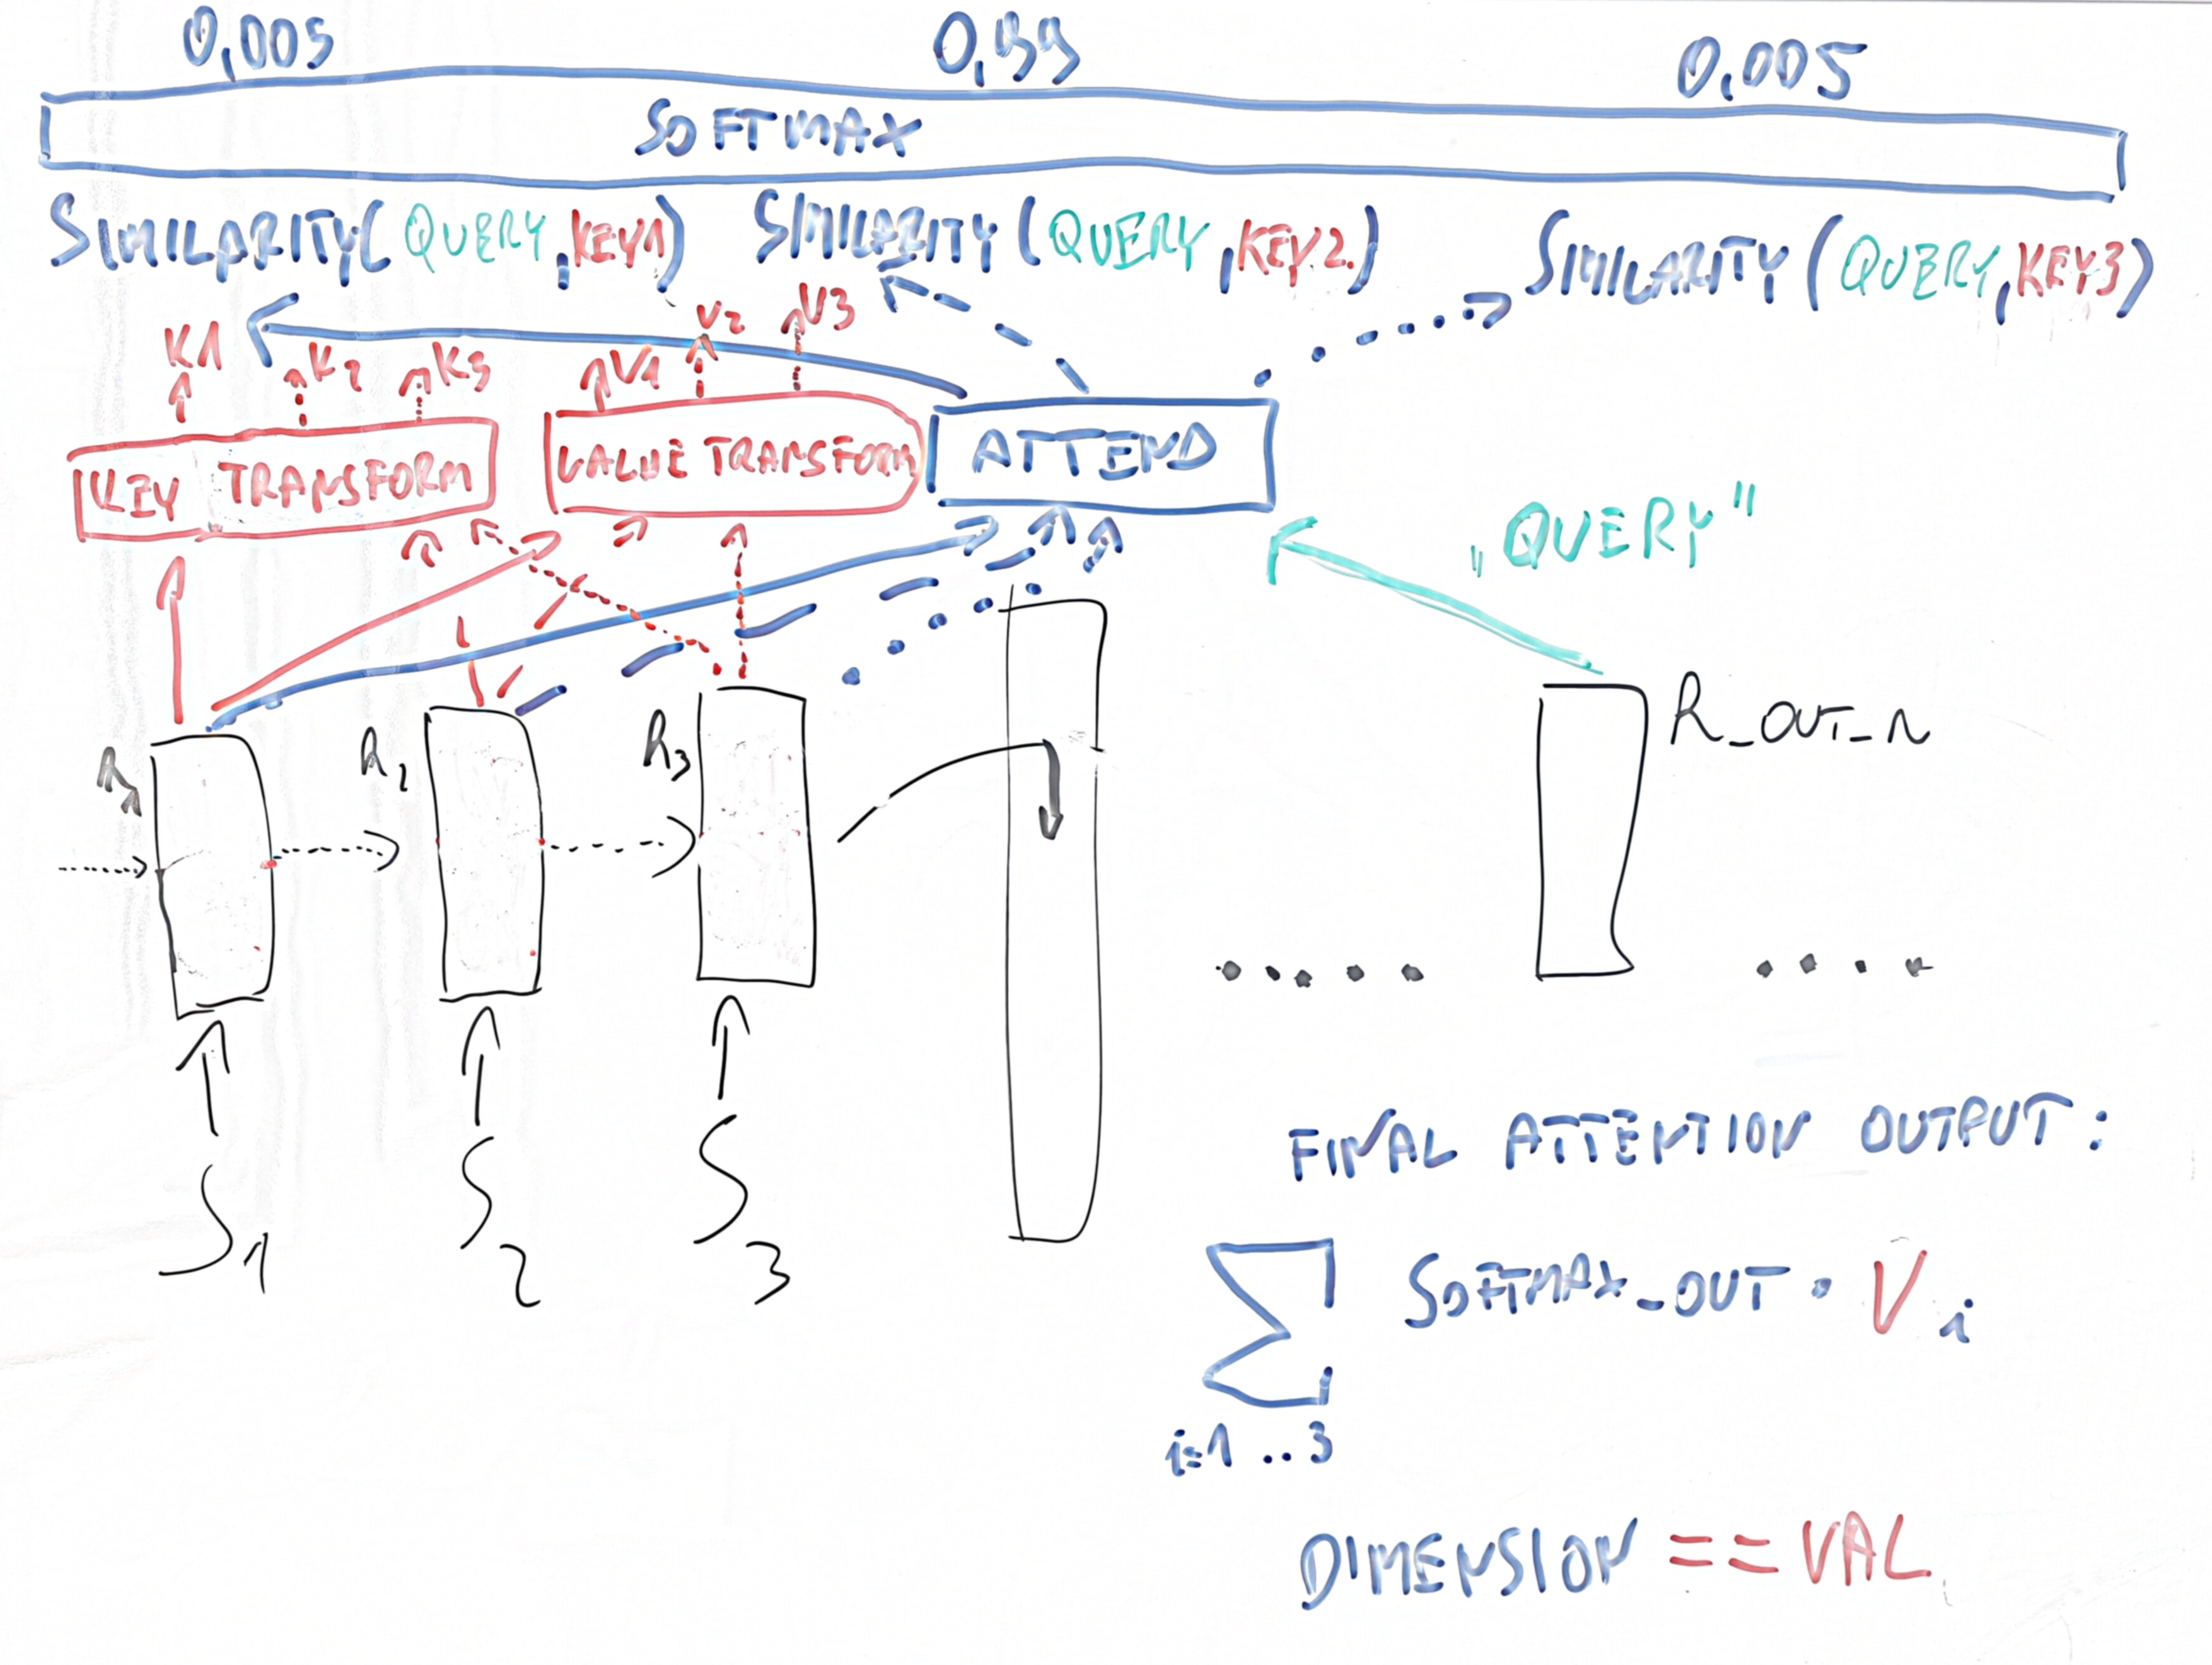 0,005 0,99 0,005
SOFTMAX
SIMILARITY(QUERY,KEY1) SIMILARITY(QUERY,KEY2) SIMILARITY(QUERY,KEY3)
K1 K2 K3 V1 V2 V3
KEY TRANSFORM VALUE TRANSFORM ATTEND
„QUERY"
R1 R2 R3 R_OUT_N
S1 S2 S3
FINAL ATTENTION OUTPUT:
∑ SOFTMAX_OUT • Vi
i=1 .. 3
DIMENSION == VAL